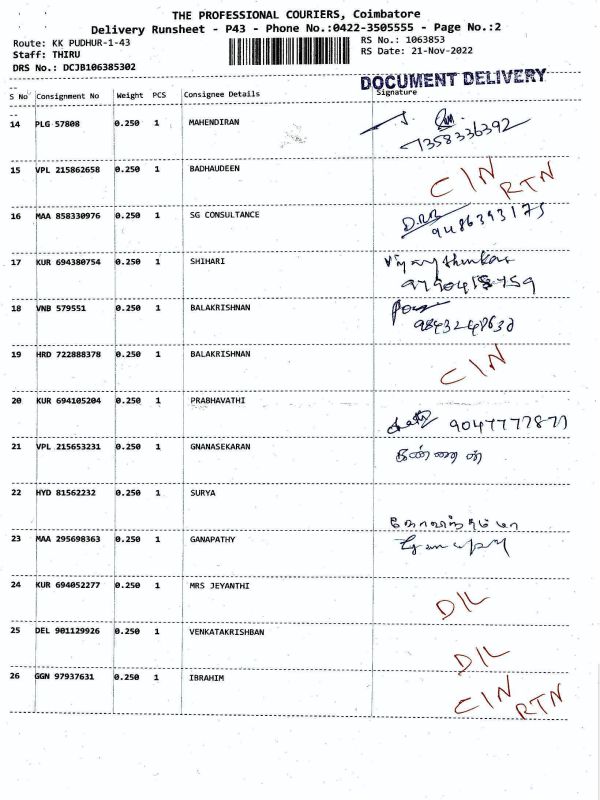 THE PROFESSIONAL COURIERS, Coimbatore
Delivery Runsheet - P43 - Phone No.:0422-3505555 - Page No.:2
Route: KK PUDHUR-1-43 RS No.: 1063853
Staff: THIRU RS Date: 21-Nov-2022
DRS No.: DCJB106385302
DOCUMENT DELIVERY
S No Consignment No Weight PCS Consignee Details Signature
14 PLG 57808 0.250 1 MAHENDIRAN
7358336392
15 VPL 215862658 0.250 1 BADHAUDEEN CIN RTN
16 MAA 858330976 0.250 1 SG CONSULTANCE
9486393175
17 KUR 694380754 0.250 1 SHIHARI
18 VNB 579551 0.250 1 BALAKRISHNAN
19 HRD 722888378 0.250 1 BALAKRISHNAN CIN
20 KUR 694105204 0.250 1 PRABHAVATHI
9047777877
21 VPL 215653231 0.250 1 GNANASEKARAN
22 HYD 81562232 0.250 1 SURYA
23 MAA 295698363 0.250 1 GANAPATHY
24 KUR 694052277 0.250 1 MRS JEYANTHI D/L
25 DEL 901129926 0.250 1 VENKATAKRISHBAN D/L
26 GGN 97937631 0.250 1 IBRAHIM CIN RTN